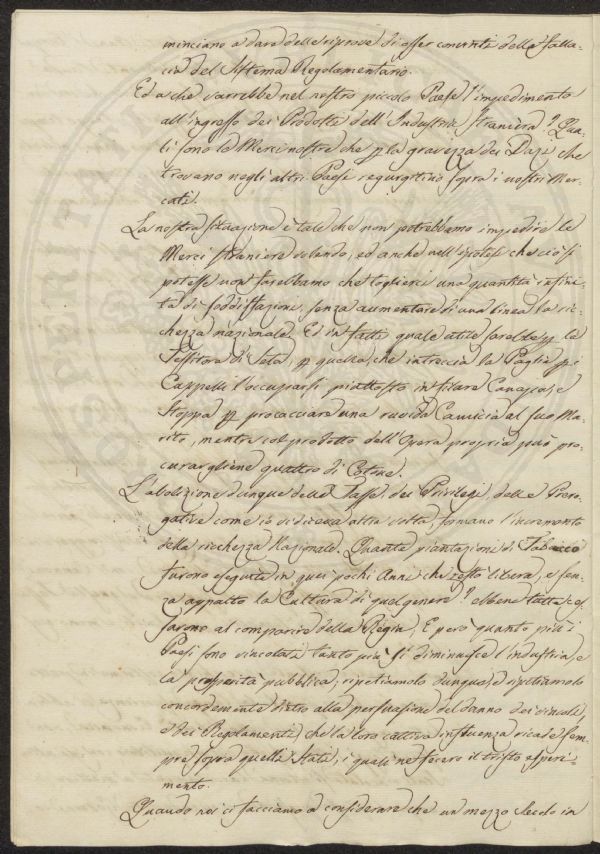 minciano a dare delle riprove di esser convinti della falla-
cia del Sistema Regolamentario.
Ed a che varrebbe nel nostro piccolo Paese l'impedimento
all'ingresso dei Prodotti dell'Industria straniera? Qua-
li sono le Merci nostre che p la gravezza dei Dazi, che
trovano negli altri Paesi regurgitino sopra i nostri Mer-
cati.
La nostra situazione è tale che non potrebbamo impedire le
Merci straniere volendo, ed anche nell'ipotesi che ciò si
potesse non farebbamo che toglierci una quantità infini-
ta di soddisfazioni, senza aumentare di una linea la ric-
chezza nazionale. Ed in fatti quale utile sarebbe p la
Tessitora di Seta, p quella, che intreccia la Paglia p i
Cappelli l'occuparsi piuttosto in filare Canapa, e
Stoppa p procacciare una ruvida Camicia al suo Ma-
rito, mentre col prodotto dell'Opera propria può pro-
curargliene quattro di Cotone.
L'abolizione dunque delle Tasse, dei Privilegi, delle Prero-
gative come io vi diceva altra volta, formano l'incremento
della ricchezza Nazionale. Quante piantazioni di Tabacco
furono eseguite in quei pochi Anni che restò libera, e sen-
za appalto la Cultura di quel genere? ebbene tutte ces-
sarono al comparire della Regia, E però quanto più i
Paesi sono vincolati tanto più si diminuisce l'industria, e
la prosperità pubblica, ripetiamolo dunque, e ripetiamolo
concordemente dietro alla persuasione del danno dei vincoli,
e dei Regolamenti, che la loro cattiva influenza ricade sem-
pre sopra quelli Stati, i quali ne fecero il tristo esperi-
mento.
Quando noi ci facciamo a considerare che un mezzo secolo in